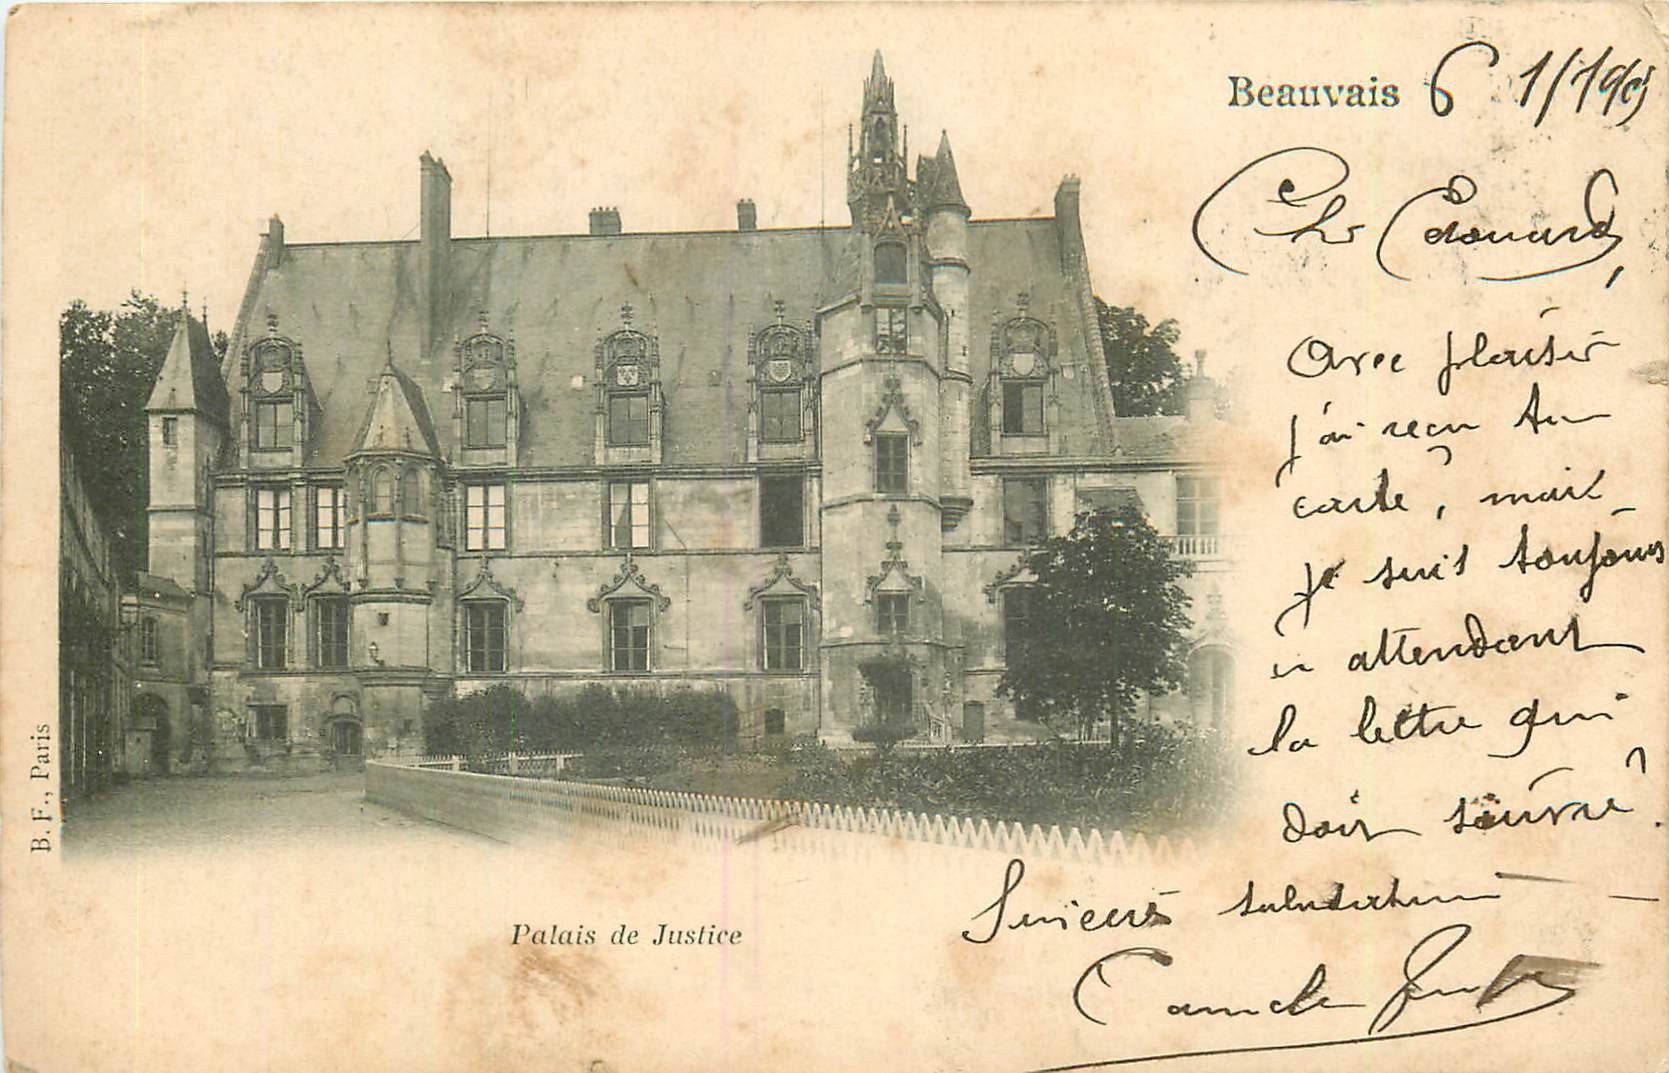 Beauvais 6 1/190
Cher Edouard,
Avec plaisir
j'ai reçu ta
carte, mais
je suis toujours
en attendant
la lettre qui
doit suivre.
Sincères salutations
Camille
Palais de Justice
B. F., Paris